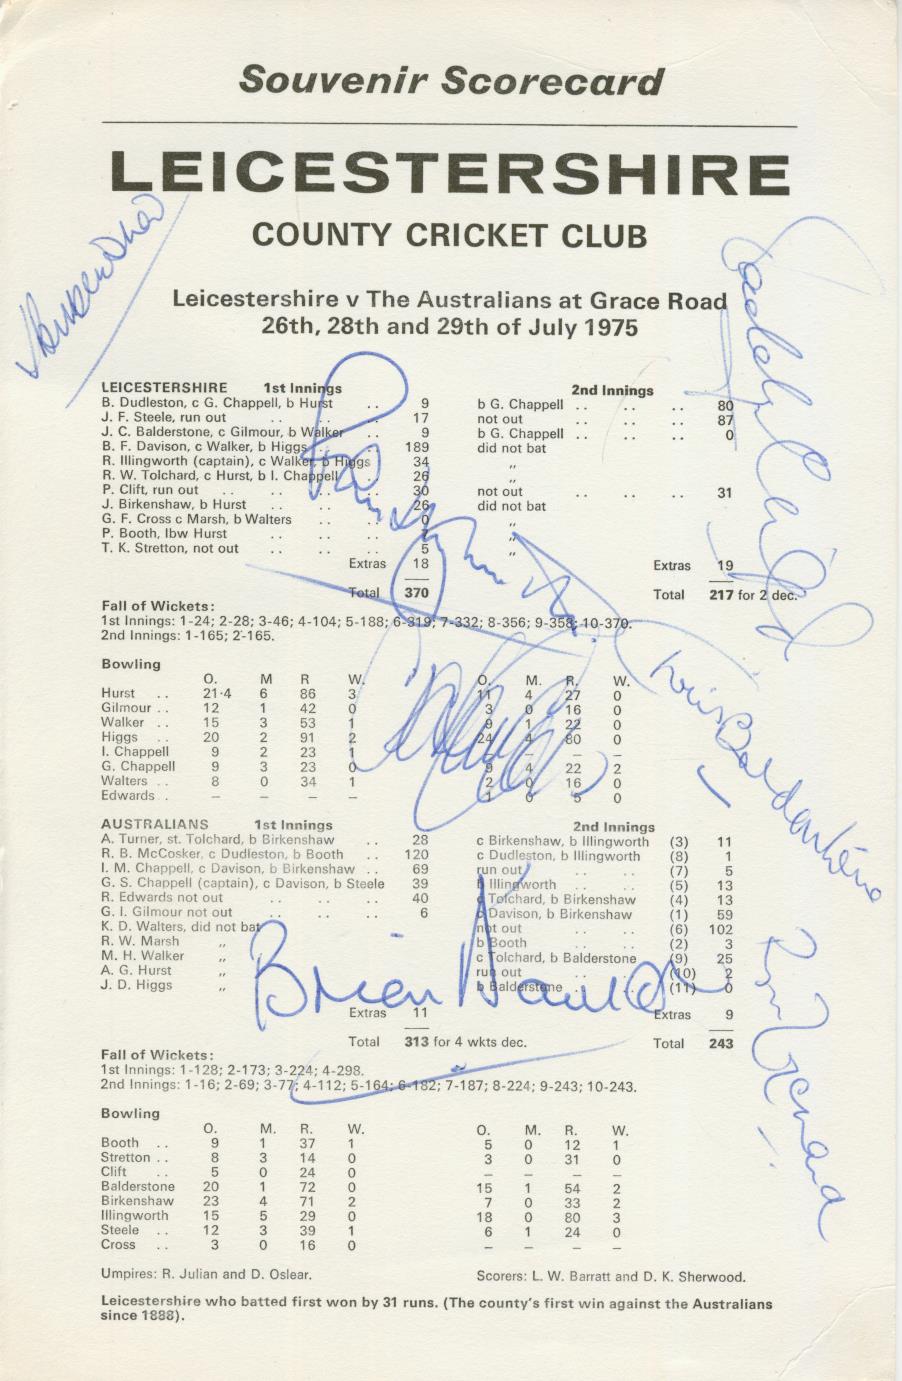 Souvenir Scorecard
LEICESTERSHIRE
COUNTY CRICKET CLUB
Leicestershire v The Australians at Grace Road
26th, 28th and 29th of July 1975
LEICESTERSHIRE 1st Innings 2nd Innings
B. Dudleston, c G. Chappell, b Hurst .. 9 b G. Chappell .. .. .. 80
J. F. Steele, run out .. .. .. 17 not out .. .. .. 87
J. C. Balderstone, c Gilmour, b Walker .. 9 b G. Chappell .. .. .. 0
B. F. Davison, c Walker, b Higgs .. 189 did not bat
R. Illingworth (captain), c Walker, b Higgs 34 ,,
R. W. Tolchard, c Hurst, b I. Chappell 26 ,,
P. Clift, run out .. .. .. .. 30 not out .. .. .. 31
J. Birkenshaw, b Hurst .. .. .. 26 did not bat
G. F. Cross c Marsh, b Walters .. .. 0 ,,
P. Booth, lbw Hurst .. .. .. 7 ,,
T. K. Stretton, not out .. .. .. 5 ,,
Extras 18 Extras 19
Total 370 Total 217 for 2 dec.
Fall of Wickets:
1st Innings: 1-24; 2-28; 3-46; 4-104; 5-188; 6-319; 7-332; 8-356; 9-358; 10-370.
2nd Innings: 1-165; 2-165.
Bowling
O. M R W. O. M. R. W.
Hurst .. 21·4 6 86 3 11 4 27 0
Gilmour .. 12 1 42 0 3 0 16 0
Walker .. 15 3 53 1 9 1 22 0
Higgs .. 20 2 91 2 24 4 80 0
I. Chappell 9 2 23 1 – – – –
G. Chappell 9 3 23 0 9 4 22 2
Walters .. 8 0 34 1 2 0 16 0
Edwards . – – – – 1 0 5 0
AUSTRALIANS 1st Innings 2nd Innings
A. Turner, st. Tolchard, b Birkenshaw .. 28 c Birkenshaw, b Illingworth (3) 11
R. B. McCosker, c Dudleston, b Booth .. 120 c Dudleston, b Illingworth (8) 1
I. M. Chappell, c Davison, b Birkenshaw .. 69 run out .. .. (7) 5
G. S. Chappell (captain), c Davison, b Steele 39 b Illingworth .. .. (5) 13
R. Edwards not out .. .. .. 40 c Tolchard, b Birkenshaw (4) 13
G. I. Gilmour not out .. .. .. 6 c Davison, b Birkenshaw (1) 59
K. D. Walters, did not bat not out .. .. (6) 102
R. W. Marsh ,, b Booth .. .. (2) 3
M. H. Walker ,, c Tolchard, b Balderstone (9) 25
A. G. Hurst ,, run out .. .. (10) 2
J. D. Higgs ,, b Balderstone .. .. (11) 0
Extras 11 Extras 9
Total 313 for 4 wkts dec. Total 243
Fall of Wickets:
1st Innings: 1-128; 2-173; 3-224; 4-298.
2nd Innings: 1-16; 2-69; 3-77; 4-112; 5-164; 6-182; 7-187; 8-224; 9-243; 10-243.
Bowling
O. M. R. W. O. M. R. W.
Booth .. 9 1 37 1 5 0 12 1
Stretton .. 8 3 14 0 3 0 31 0
Clift .. 5 0 24 0 – – – –
Balderstone 20 1 72 0 15 1 54 2
Birkenshaw 23 4 71 2 7 0 33 2
Illingworth 15 5 29 0 18 0 80 3
Steele .. 12 3 39 1 6 1 24 0
Cross .. 3 0 16 0 – – – –
Umpires: R. Julian and D. Oslear. Scorers: L. W. Barratt and D. K. Sherwood.
Leicestershire who batted first won by 31 runs. (The county's first win against the Australians
since 1888).
Brian